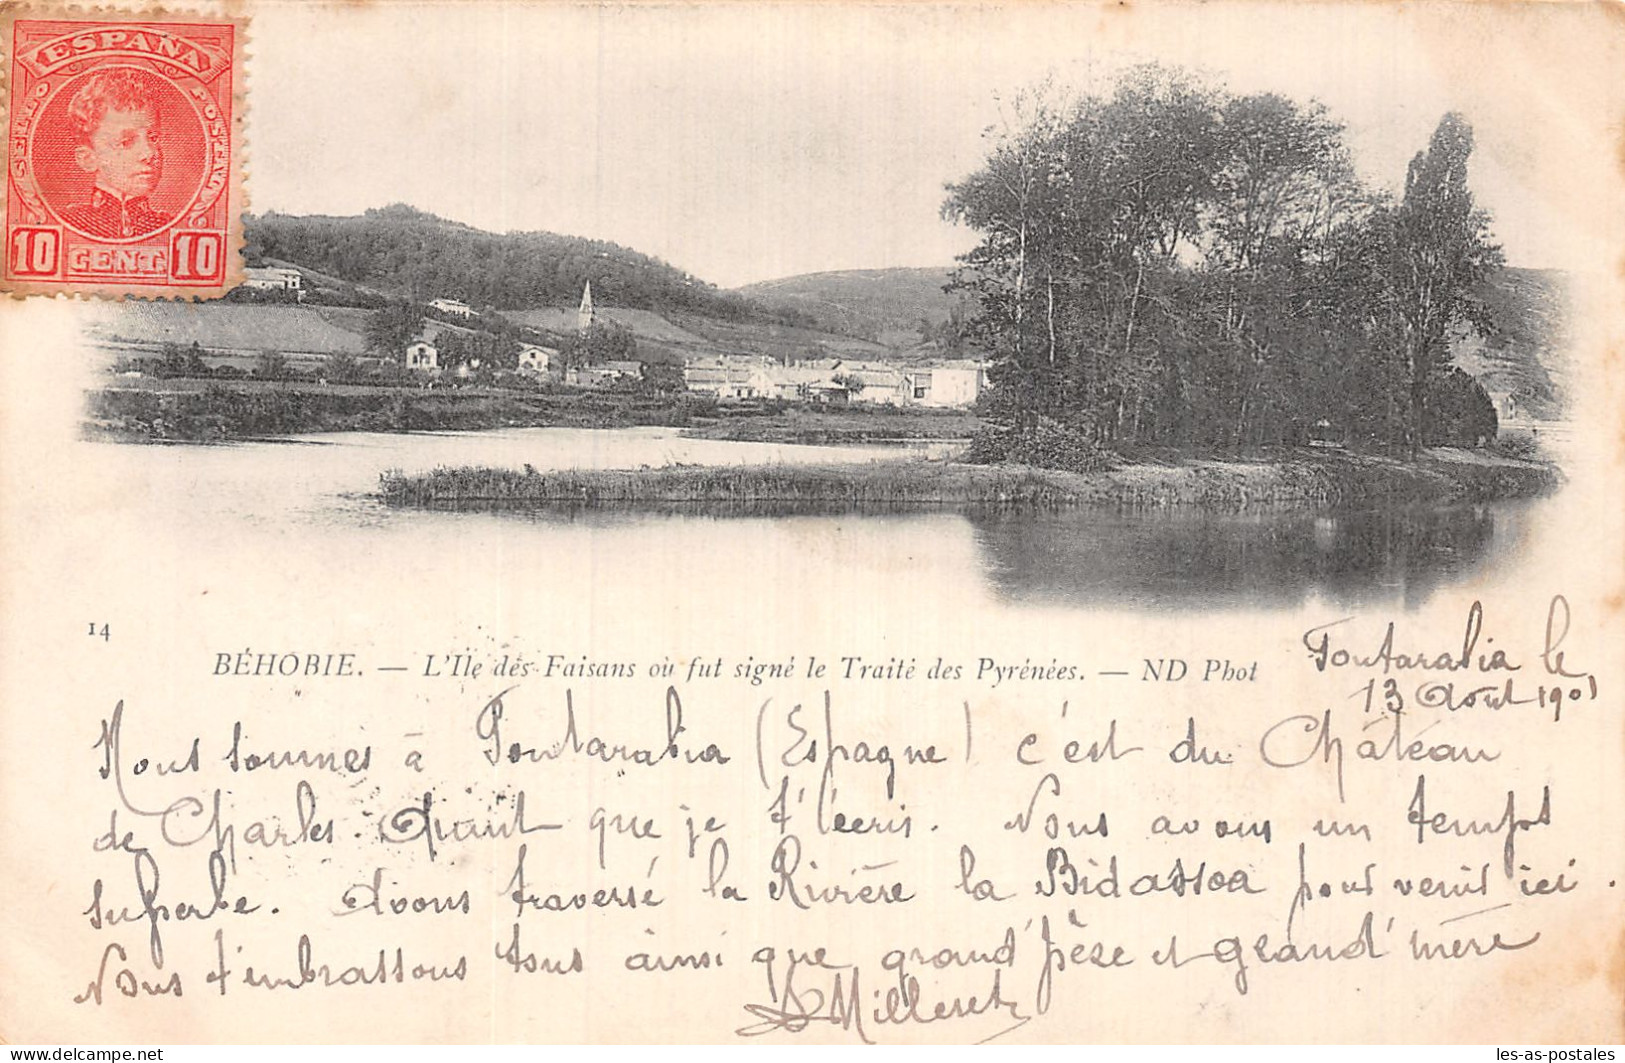 ESPAÑA
SELLO POSTAL
10 CENT. 10
14
BÉHOBIE. — L'Ile des Faisans où fut signé le Traité des Pyrénées. — ND Phot
Fontarabia le
13 Août 1901
Nous sommes à Fontarabia (Espagne) c'est du Château
de Charles Quint que je t'écris. Nous avons un temps
superbe. Avons traversé la Rivière la Bidassoa pour venir ici.
Nous t'embrassons tous ainsi que grand'père et grand'mère
Milleret
les-as-postales
delcampe.net